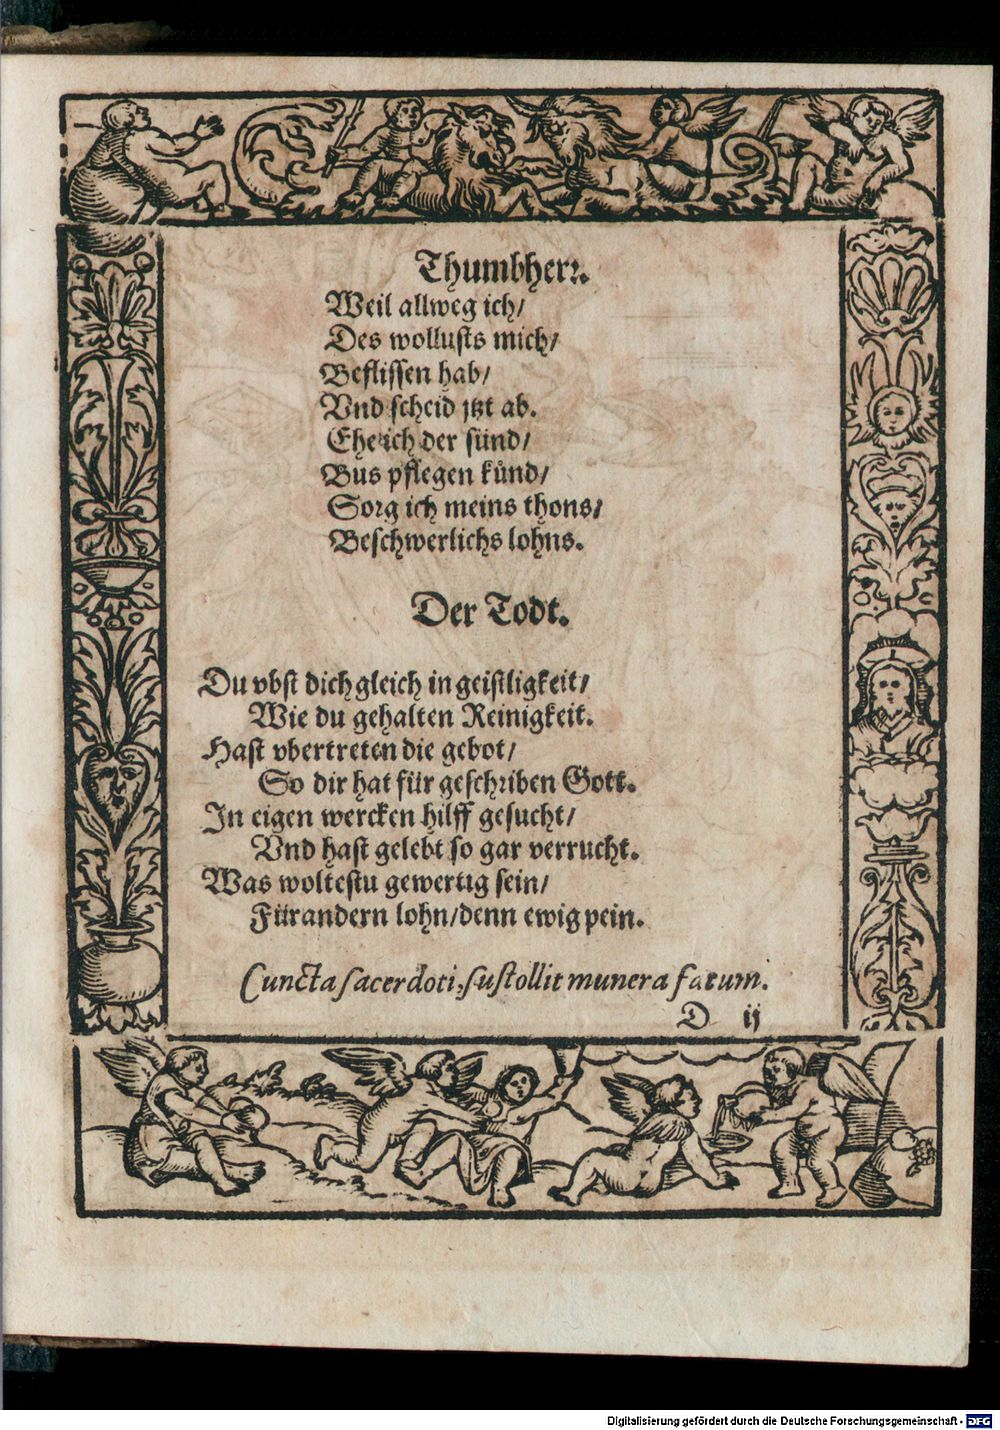 Thumbherr.
Weil allweg ich/
Des wollusts mich/
Beflissen hab/
Vnd scheid jtzt ab.
Ehe ich der sünd/
Bus pflegen künd/
Sorg ich meins thons/
Beschwerlichs lohns.
Der Todt.
Du vbst dich gleich in geistligkeit/
Wie du gehalten Reinigkeit.
Hast vbertreten die gebot/
So dir hat für geschriben Gott.
In eigen wercken hilff gesucht/
Vnd hast gelebt so gar verrucht.
Was woltestu gewertig sein/
Für andern lohn/denn ewig pein.
Cuncta sacerdoti, sustollit munera fatum.
D ij
Digitalisierung gefördert durch die Deutsche Forschungsgemeinschaft - DFG